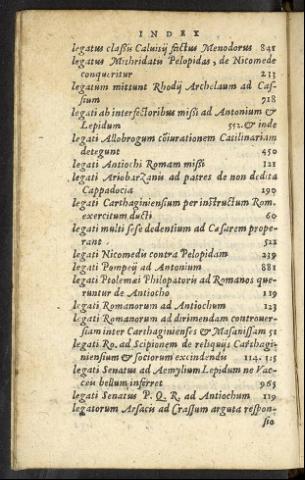 INDEX
legatus classis Caluisij fictus Menodorus 841
legatus Mithridatis Pelopidas, de Nicomede
conqueritur 233
legatum mittunt Rhodij Archelaum ad Cas-
sium 718
legati ab interfectoribus missi ad Antonium &
Lepidum 552. & inde
legati Allobrogum cõiurationem Catilinariam
detegunt 450
legati Antiochi Romam missi 121
legati AriobarZanis ad patres de non dedita
Cappadocia 190
legati Carthaginiensium per instructum Rom.
exercitum ducti 60
legati multi sese dedentium ad Cæsarem prope-
rant 522
legati Nicomedis contra Pelopidam 239
legati Pompeij ad Antonium 881
legati Ptolemæi Philopatoris ad Romanos que-
runtur de Antiocho 119
legati Romanorum ad Antiochum 123
legati Romanorum ad dirimendam controuer-
siam inter Carthaginienses & Masanissam 51
legati Ro. ad Scipionem de reliquijs Carthagi-
niensium & sociorum excindendis 114. 115
legati Senatus ad Aemylium Lepidum ne Vac-
cæis bellum inferret 965
legati Senatus P. Q. R. ad Antiochum 119
legatorum Arsacis ad Crassum arguta respon-
sio